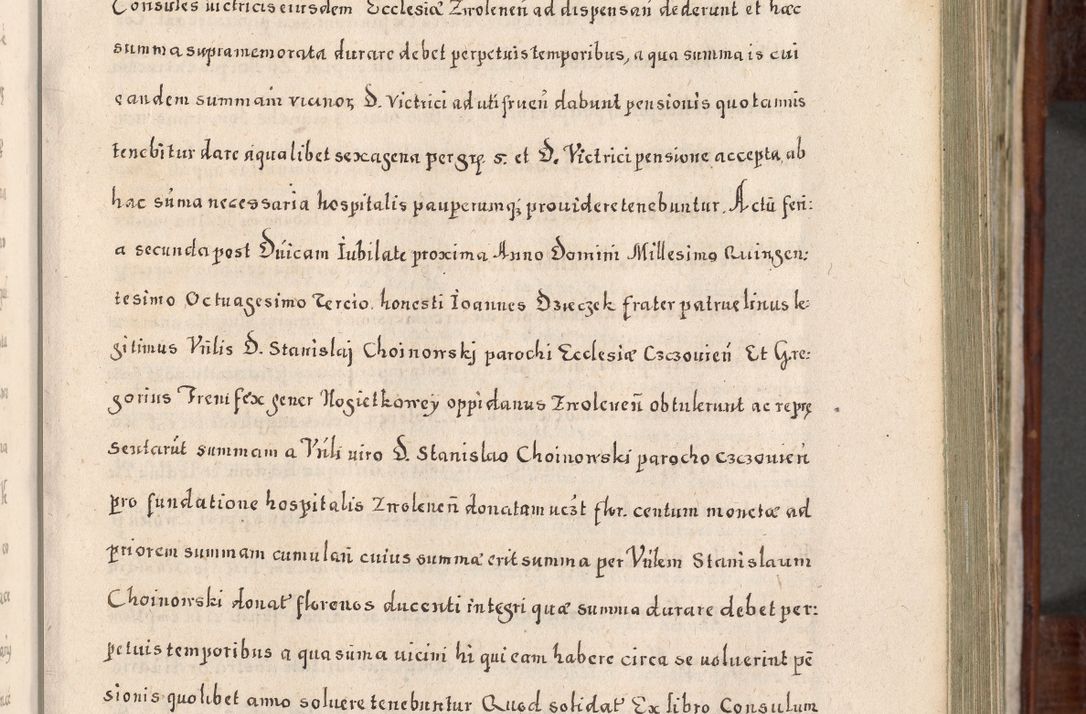 Consules uictricis eiusdem Ecclesiæ Zwoleneñ ad dispensañ dederunt et hæc
summa supramemorata durare debet perpetuis temporibus, a qua summa is cui
eandem summam vicinoꝝ D. Victrici ad utifrueñ dabunt pensionis quotannis
tenebitur dare a qualibet sexagena per gr̨. 5. et D. Victrici pensione accepta, ab
hac sũma necessaria hospitalis pauperumq; prouidere tenebuntur. Actũ feri:
a secunda post Dńicam Iubilate proxima Anno Domini Millesimo Quingen:
tesimo Octuagesimo Tercio. honesti Ioannes Dzieczek frater patruelinus le:
gitimus Vńlis D. Stanislaj Choinowskj parochi Ecclesiæ Czczouień Et Gre:
gorius Frenifex gener Nogietkowey oppidanus Zwoleneñ obtulerunt ac reprę
sentarũt summam a Vńli uiro D. Stanislao Choinowski parocho Czczouień
pro fundatione hospitalis Zwoleneñ donatam uczt flor. centum monetæ ad
priorem summam cumulañ cuius summæ erit summa per Vńlem Stanislaum
Choinowski donat florenos ducenti integri quæ summa durare debet per:
petuis temporibus a qua sũma uicini hi qui eam habere circa se uoluerint pẽ
sionis quolibet anno soluere tenebuntur Quod solidat Ex libro Consulum